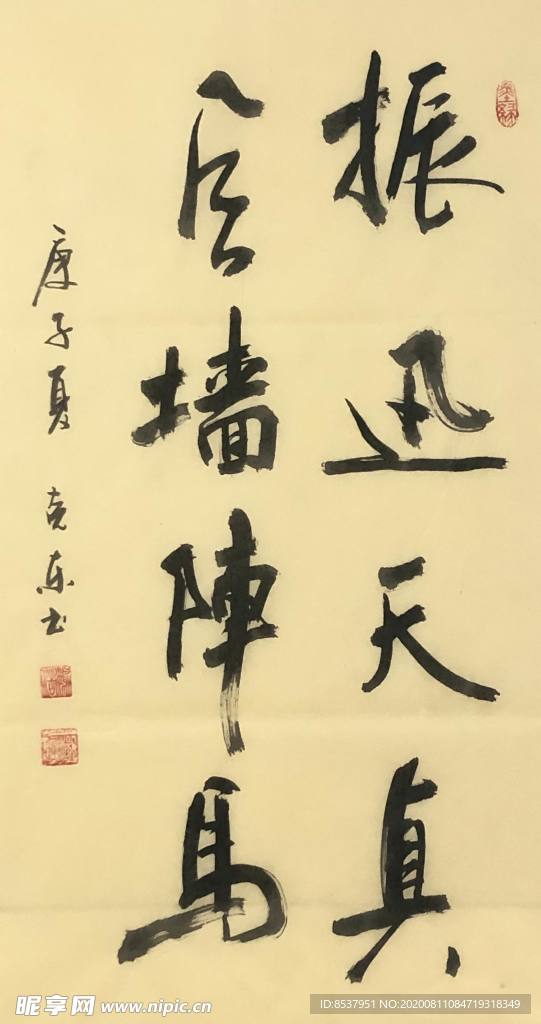 振迅天真
墙陣馬
庚子夏 克东书
墨缘
昵享网 www.nipic.cn
ID:8537951 NO:20200811084719318349